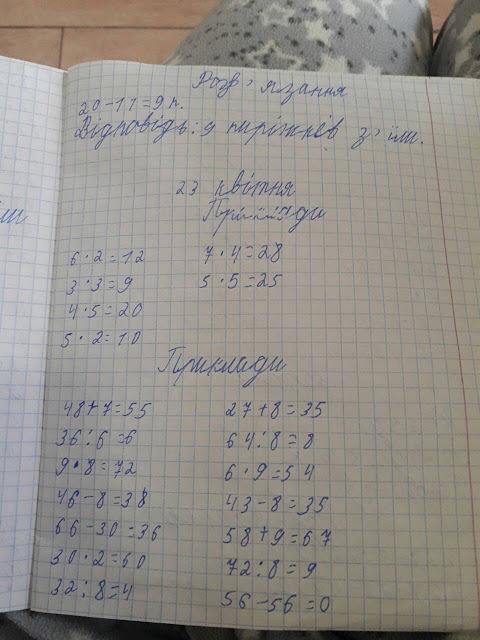 Розв'язання
20-11=9 п.
Відповідь: 9 пиріжків з'їли.
23 квітня
Приклади
6·2=12 7·4=28
3·3=9 5·5=25
4·5=20
5·2=10
Приклади
48+7=55 27+8=35
36:6=6 64:8=8
9·8=72 6·9=54
46-8=38 43-8=35
66-30=36 58+9=67
30·2=60 72:8=9
32:8=4 56-56=0